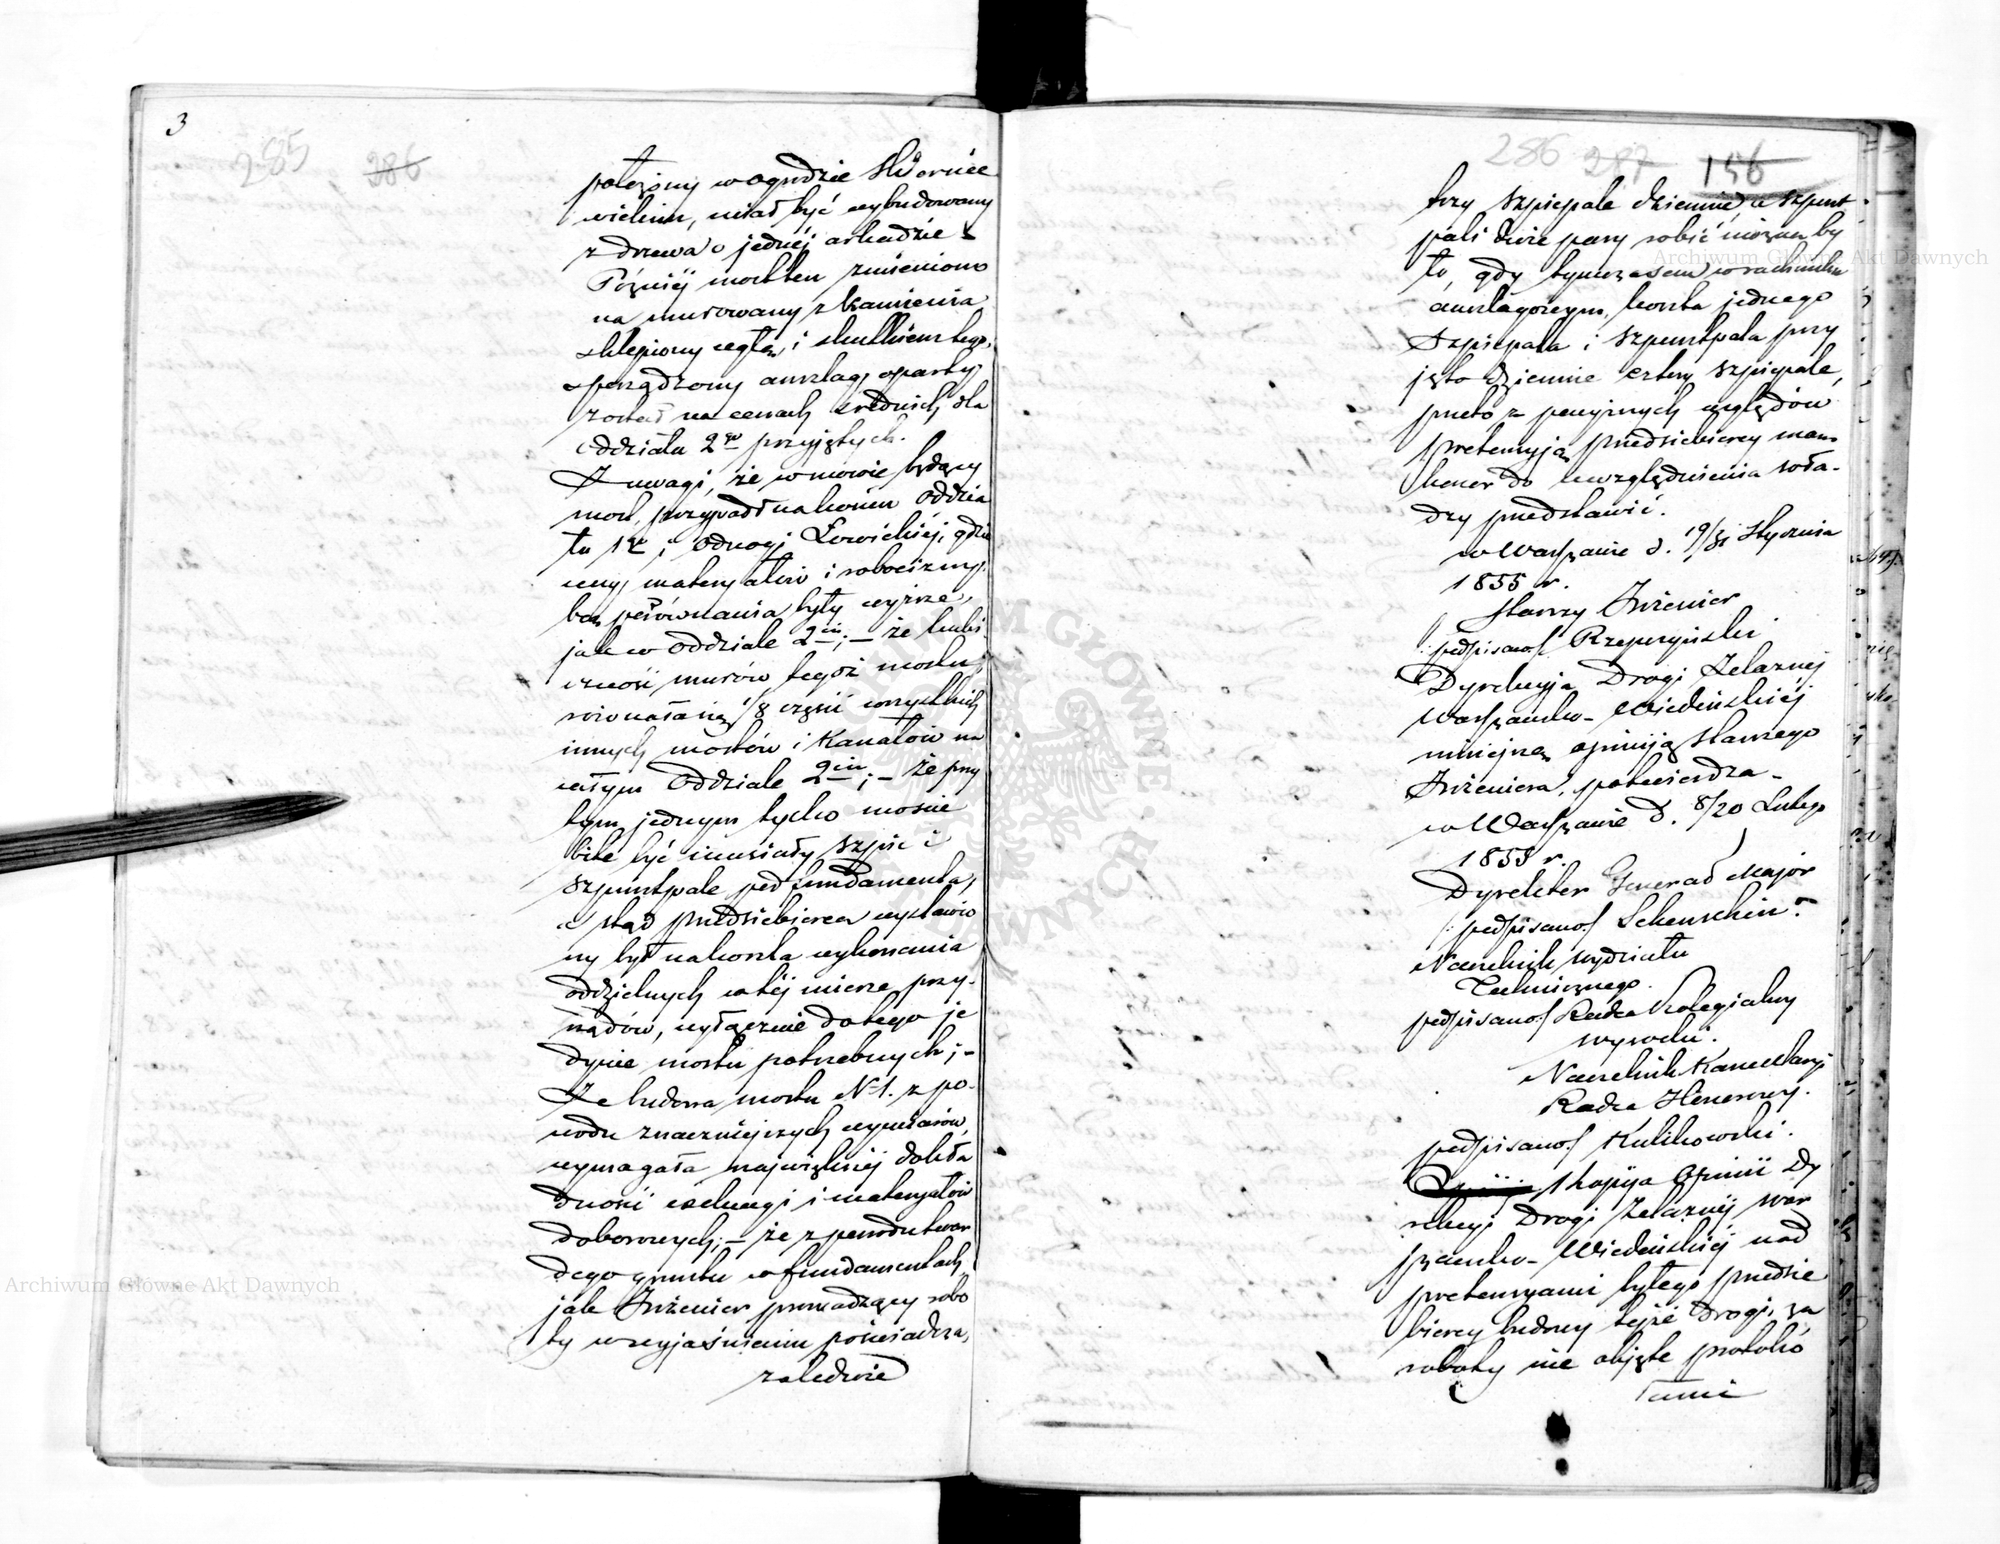 3
285 286
położony w ogrodzie Skierniewickim, miał być wybudowany
z drzewa o jednej arkadzie
Później most ten zmieniono
na murowany z kamienia
sklepiony cegłą, i skutkiem tego
sporządzony anszlag, oparty
został na cenach średnich dla
Oddziału 2go przyjętych.
Z uwagi, że w mowie będący
most, przypadł na końcu Oddzia
łu 1go i Odnogi Łowickiej, gdzie
ceny, materyałów i robocizny
bez porównania były wyższe,
jak w Oddziale 2im; – że kubi
czność murów tegoż mostu
równała się 1/8 części wszystkich
innych mostów i Kanałów na
całym Oddziale 2im; – że przy
tym jednym tylko moście
bite być musiały szpic i
szpuntpale pod fundamenta,
a stąd przedsiębierca wystawio
ny był na koszta wykonania
oddzielnych w tej mierze przy-
rządów, wyłącznie do tego je
dynie mostu potrzebnych; –
Że budowa mostu N 1. z po-
wodu znaczniejszych wymiarów,
wymagała największej dokła
dności i materyałów
doborowych; – że z powodu twar
dego gruntu w fundamentach,
jak Inżenier prowadzący robo
ty w wyjaśnieniu poświadcza,
zaledwie
286 287 156
trzy szpicpale dziennie, a szpunt
pali dwie pary robić można by
ło, gdy tymczasem w rachunku
anszlagowym, koszta jednego
Szpicpala i szpuntpala przy
jęto dziennie cztery szpicpale,
przeto z powyższych względów
pretensyją przedsiebiercy mam
honor do uwzględnienia wła-
dzy przedstawić.
w Warszawie d. 19/31 Stycznia
1855 r.
Starszy Inżenier
podpisano/ Rzepczyński
Dyrekcyja Drogi Żelaznej
Warszawsko-Wiedeńskiej
niniejszą opiniją Starszego
Inżeniera, potwierdza –
w Warszawie d. 8/20 Lutego
1855 r.
Dyrektor Generał Major
podpisano/ Schenschin
Naczelnik Wydziału
Technicznego
podpisano/ Radca Kolegialny
Naczelnik Kancellaryi
Radca Honorowy.
podpisano/ Kulikowski.
Kopija Opinii Dy
rekcyi Drogi Żelaznej War
szawsko-Wiedeńskiej nad
pretensyami byłego przedsie
biercy budowy tejże Drogi, za
roboty nie objęte protokó
łami
Archiwum Główne Akt Dawnych
Archiwum Główne Akt Dawnych
ARCHIWUM GŁÓWNE AKT DAWNYCH